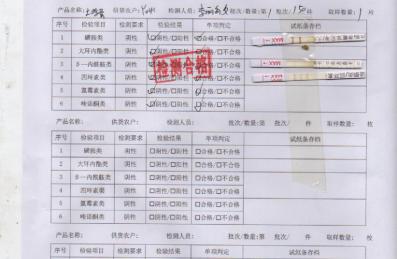 产品名称: 供货农户: 检测人员: 批次/数量:第1批次/15件 取样数量:1片
序号 检验项目 检测要求 检验结果 单项判定 试纸条存档
1 磺胺类 阴性 ☑阴性/☐阳性 ☑合格/☐不合格
2 大环内酯类 阴性 ☑阴性/☐阳性 ☑合格/☐不合格
3 β一内酰胺类 阴性 ☑阴性/☐阳性 ☑合格/☐不合格
4 四环素类 阴性 ☑阴性/☐阳性 ☑合格/☐不合格
5 氯霉素类 阴性 ☑阴性/☐阳性 ☑合格/☐不合格
6 喹诺酮类 阴性 ☑阴性/☐阳性 ☑合格/☐不合格
检测合格
MAX
MAX
MAX
产品名称: 供货农户: 检测人员: 批次/数量:第 批次/ 件 取样数量: 枚
序号 检验项目 检测要求 检验结果 单项判定 试纸条存档
1 磺胺类 阴性 ☐阴性/☐阳性 ☐合格/☐不合格
2 大环内酯类 阴性 ☐阴性/☐阳性 ☐合格/☐不合格
3 β一内酰胺类 阴性 ☐阴性/☐阳性 ☐合格/☐不合格
4 四环素类 阴性 ☐阴性/☐阳性 ☐合格/☐不合格
5 氯霉素类 阴性 ☐阴性/☐阳性 ☐合格/☐不合格
6 喹诺酮类 阴性 ☐阴性/☐阳性 ☐合格/☐不合格
产品名称: 供货农户: 检测人员: 批次/数量:第 批次/ 件 取样数量: 枚
序号 检验项目 检测要求 检验结果 单项判定 试纸条存档
1 磺胺类 阴性 ☐阴性/☐阳性 ☐合格/☐不合格